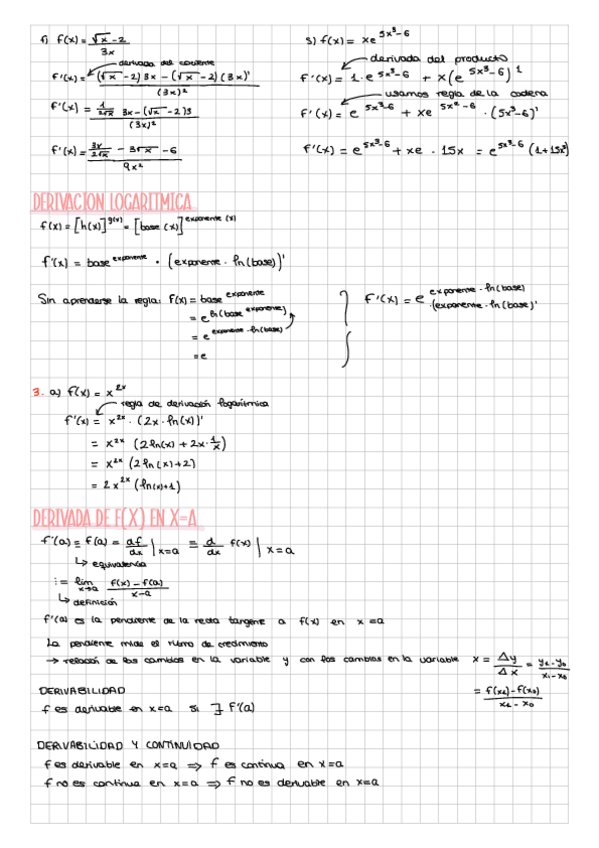 f) f(x) = √x - 2 / 3x
derivada del cociente
f'(x) = (√x - 2)' 3x - (√x - 2)(3x)' / (3x)²
f'(x) = 1/2√x 3x - (√x - 2)3 / (3x)²
f'(x) = 3x/2√x - 3√x - 6 / 9x²
g) f(x) = xe^5x³-6
derivada del producto
f'(x) = 1·e^5x³-6 + x(e^5x³-6)'
usamos regla de la cadena
f'(x) = e^5x³-6 + xe^5x³-6 · (5x³-6)'
f'(x) = e^5x³-6 + xe · 15x = e^5x³-6 (1+15x³)
DERIVACION LOGARITMICA
f(x) = [h(x)]^g(x) = [base(x)]^exponente(x)
f'(x) = base^exponente · (exponente · ln(base))'
Sin aprenderse la regla: f(x) = base^exponente
= e^ln(base^exponente)
= e^exponente·ln(base)
= e
f'(x) = e^exponente·ln(base) ·(exponente·ln(base))'
3. a) f(x) = x^2x
regla de derivación logarítmica
f'(x) = x^2x · (2x·ln(x))'
= x^2x (2ln(x) + 2x·1/x)
= x^2x (2ln(x)+2)
= 2x^2x (ln(x)+1)
DERIVADA DE F(X) EN X=A
f'(a) = f(a) = df/dx | x=a = d/dx f(x) | x=a
↳ equivalencia
:= lim x→a f(x)-f(a) / x-a
↳ definición
f'(a) es la pendiente de la recta tangente a f(x) en x=a
La pendiente mide el ritmo de crecimiento
→ relación de los cambios en la variable y con los cambios en la variable x = Δy/Δx = y₁-y₀ / x₁-x₀
= f(x₁)-f(x₀) / x₁-x₀
DERIVABILIDAD
f es derivable en x=a si ∃ f'(a)
DERIVABILIDAD Y CONTINUIDAD
f es derivable en x=a ⇒ f es continua en x=a
f no es continua en x=a ⇒ f no es derivable en x=a